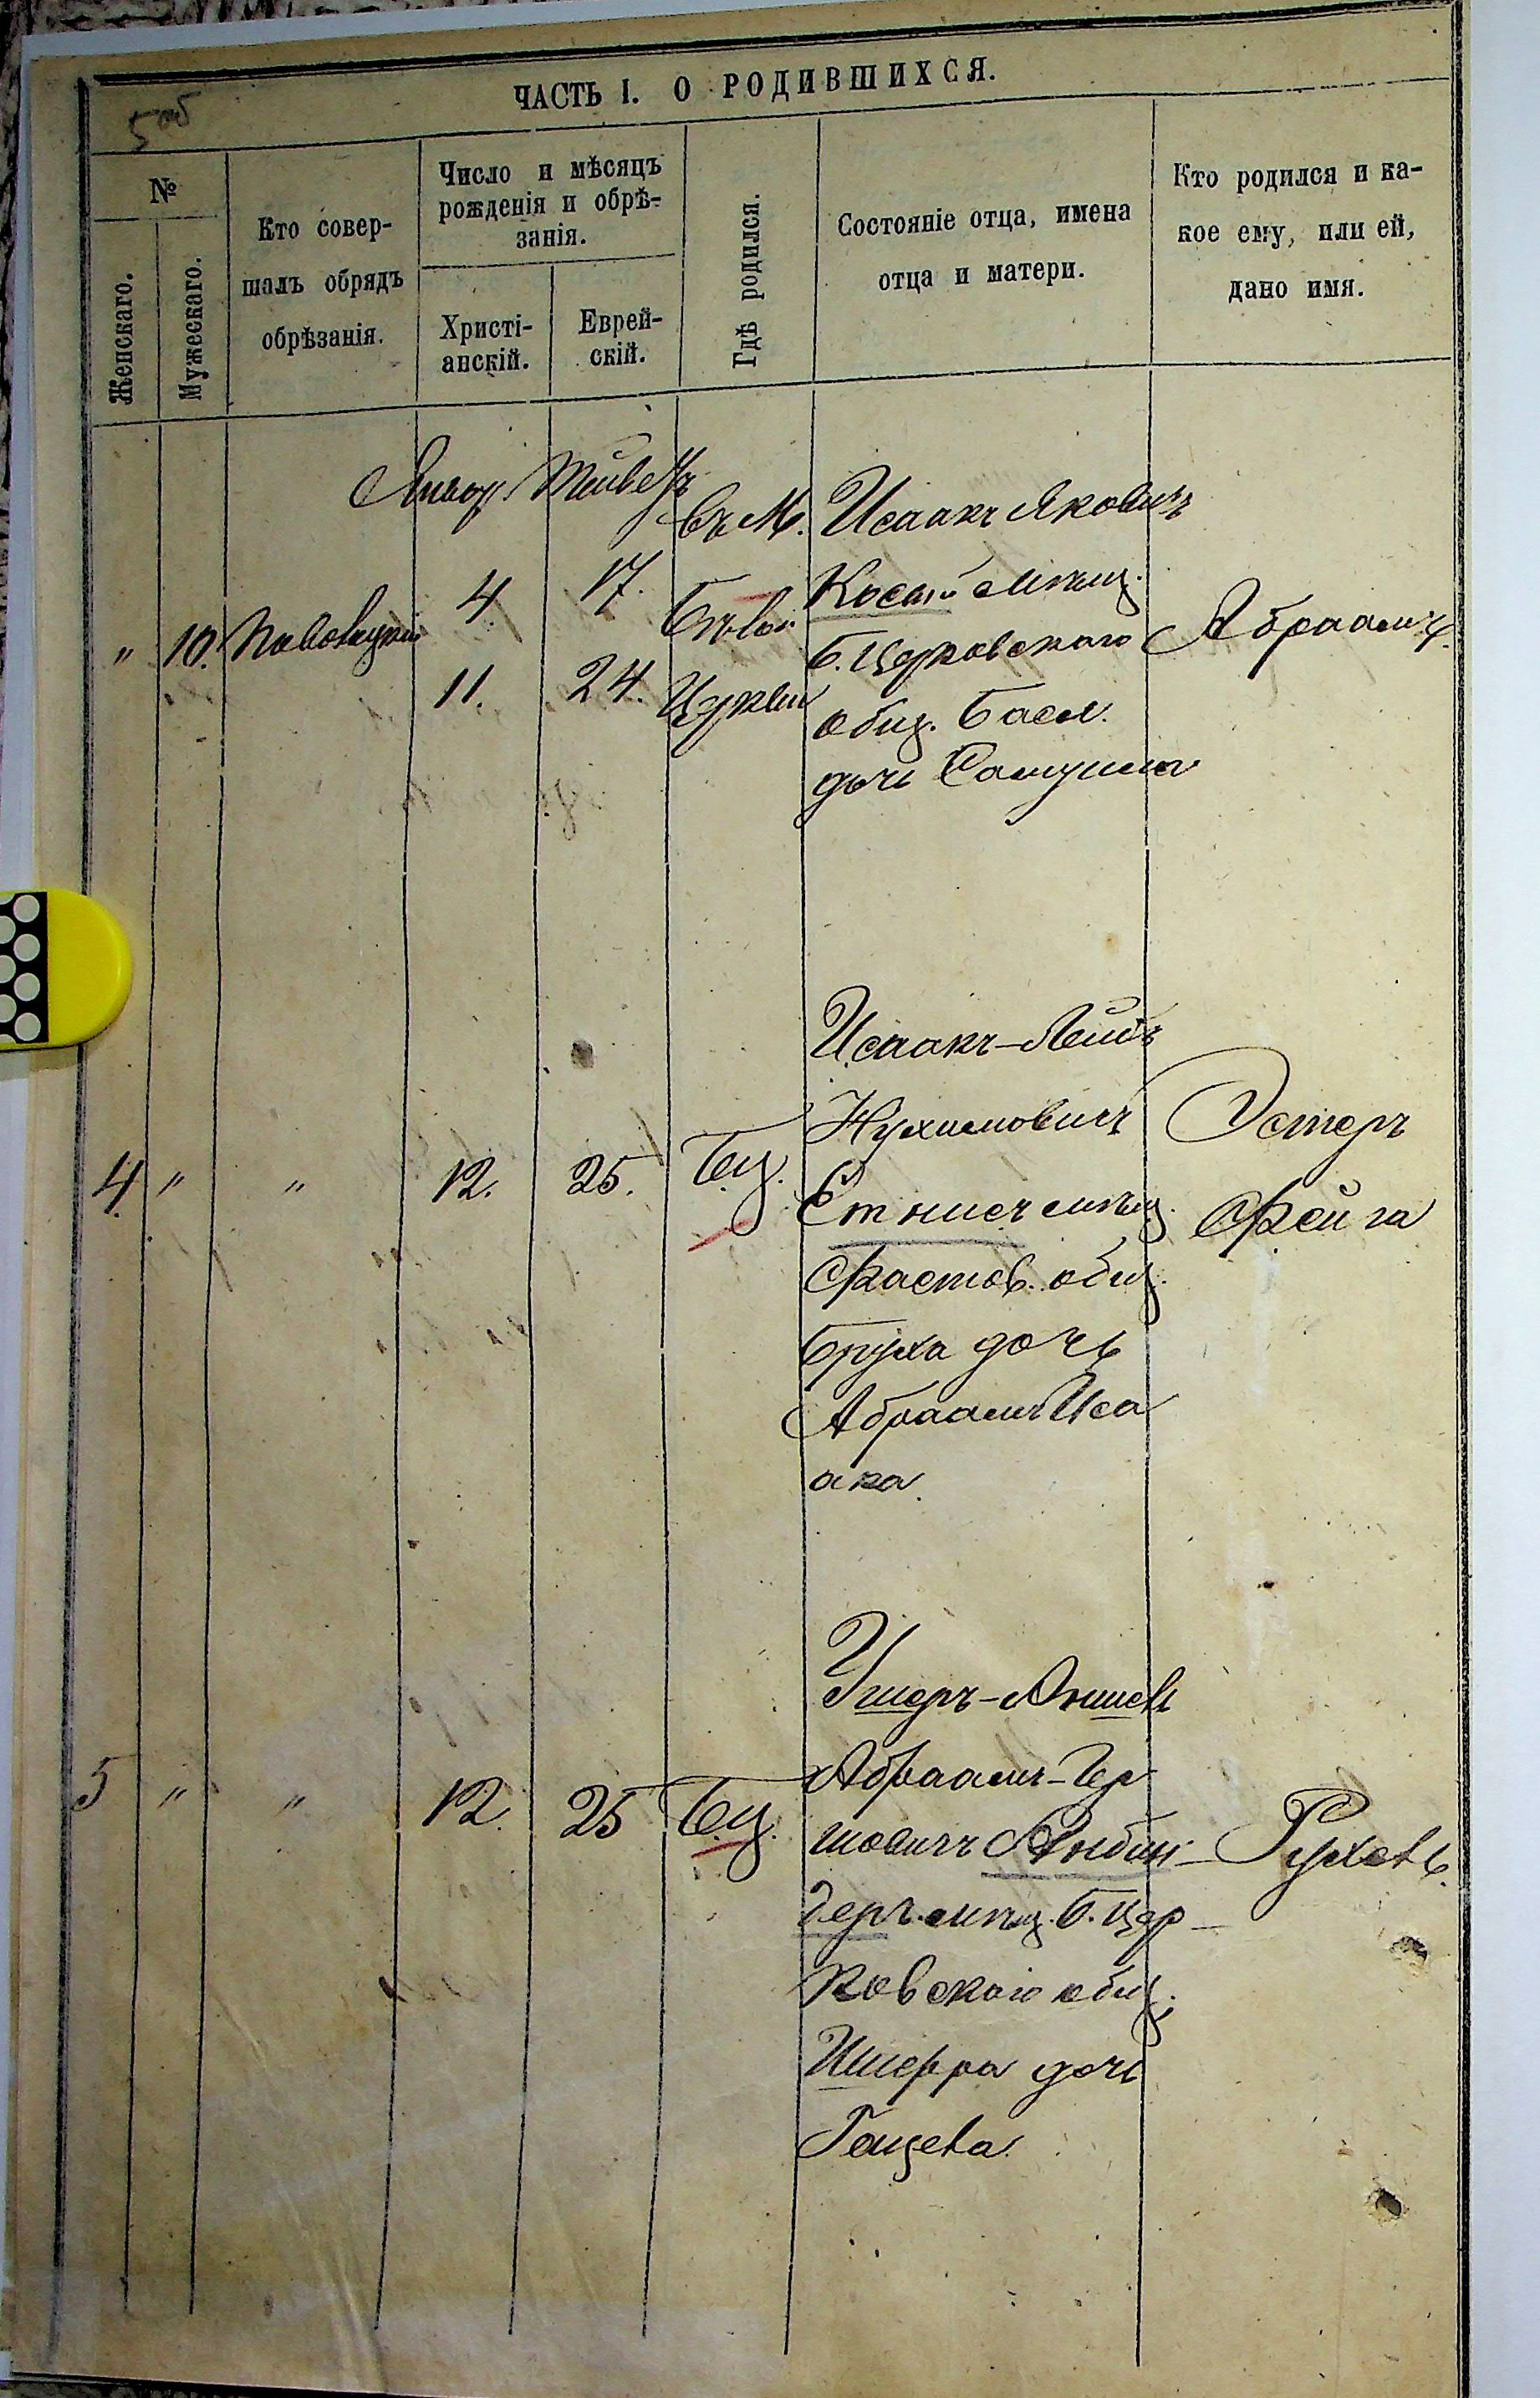 5 об
ЧАСТЬ I. О РОДИВШИХСЯ.
№
Женскаго.
Мужескаго.
Кто совер-
шалъ обрядъ
обрѣзанія.
Число и мѣсяцъ
рожденія и обрѣ-
занія.
Христі-
анскій.
Еврей-
скій.
Гдѣ родился.
Состояніе отца, имена
отца и матери.
Кто родился и ка-
кое ему, или ей,
дано имя.
Январ. Тейвеѳъ
" 10.
4.
11.
17.
24.
въ М.
Бѣлой
Церкви
Исаакъ Яковичъ
Косой мѣщ.
Б. Церковскаго
общ. Бася
дочь Самуила
Абраамъ.
4. " "
12.
25.
Б.Ц.
Исаакъ-Лейбъ
Нухимовичъ
Етнисъ мѣщ.
Фастов. общ.
Бруха дочь
Абраамъ Иса
ака.
Эстеръ
Фейга
5 " "
12.
25
Б.Ц.
Ушеръ-Аншель
Абраамъ-Гер
шовичъ
деръ мѣщ. Б. Цер-
ковскаго общ.
дочь
Рухель.